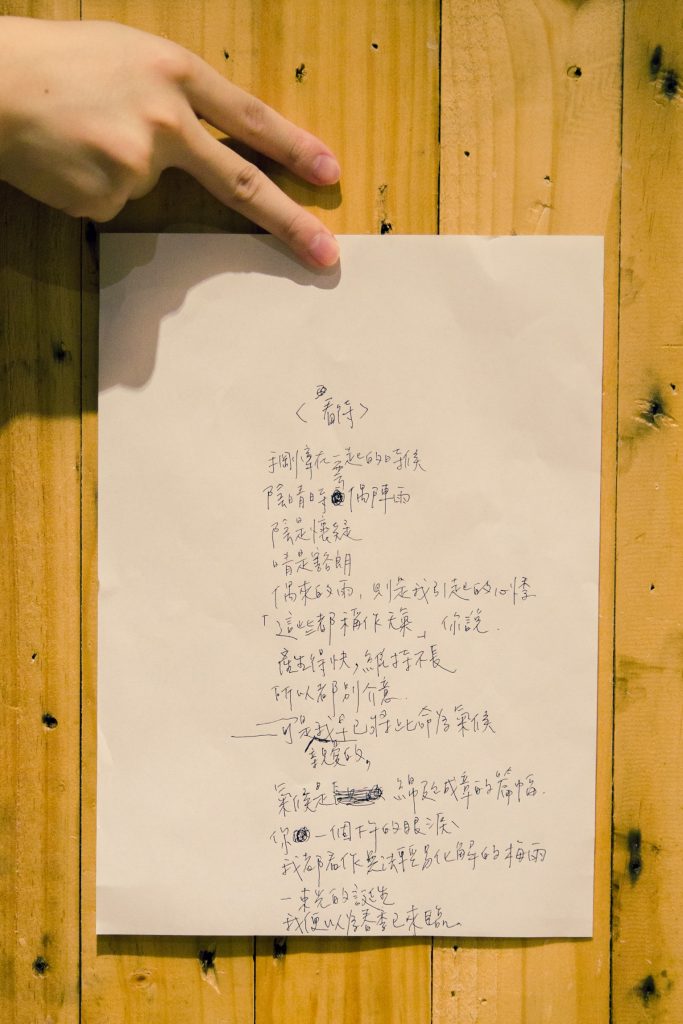 〈看待〉
我們剛牽在一起的時候
陰晴時雲偶陣雨
陰是懷疑
晴是豁朗
偶來的雨，則是我引起的心悸
「這些都稱作天氣」你說.
產生得快，維持不長
所以都別介意.
可是我早已將此命為氣候
親愛的，
氣候是 綿延成章的篇幅.
你一個下午的眼淚、
我都看作無法輕易化解的梅雨
一束光的誕生
我便以為春季已來臨。